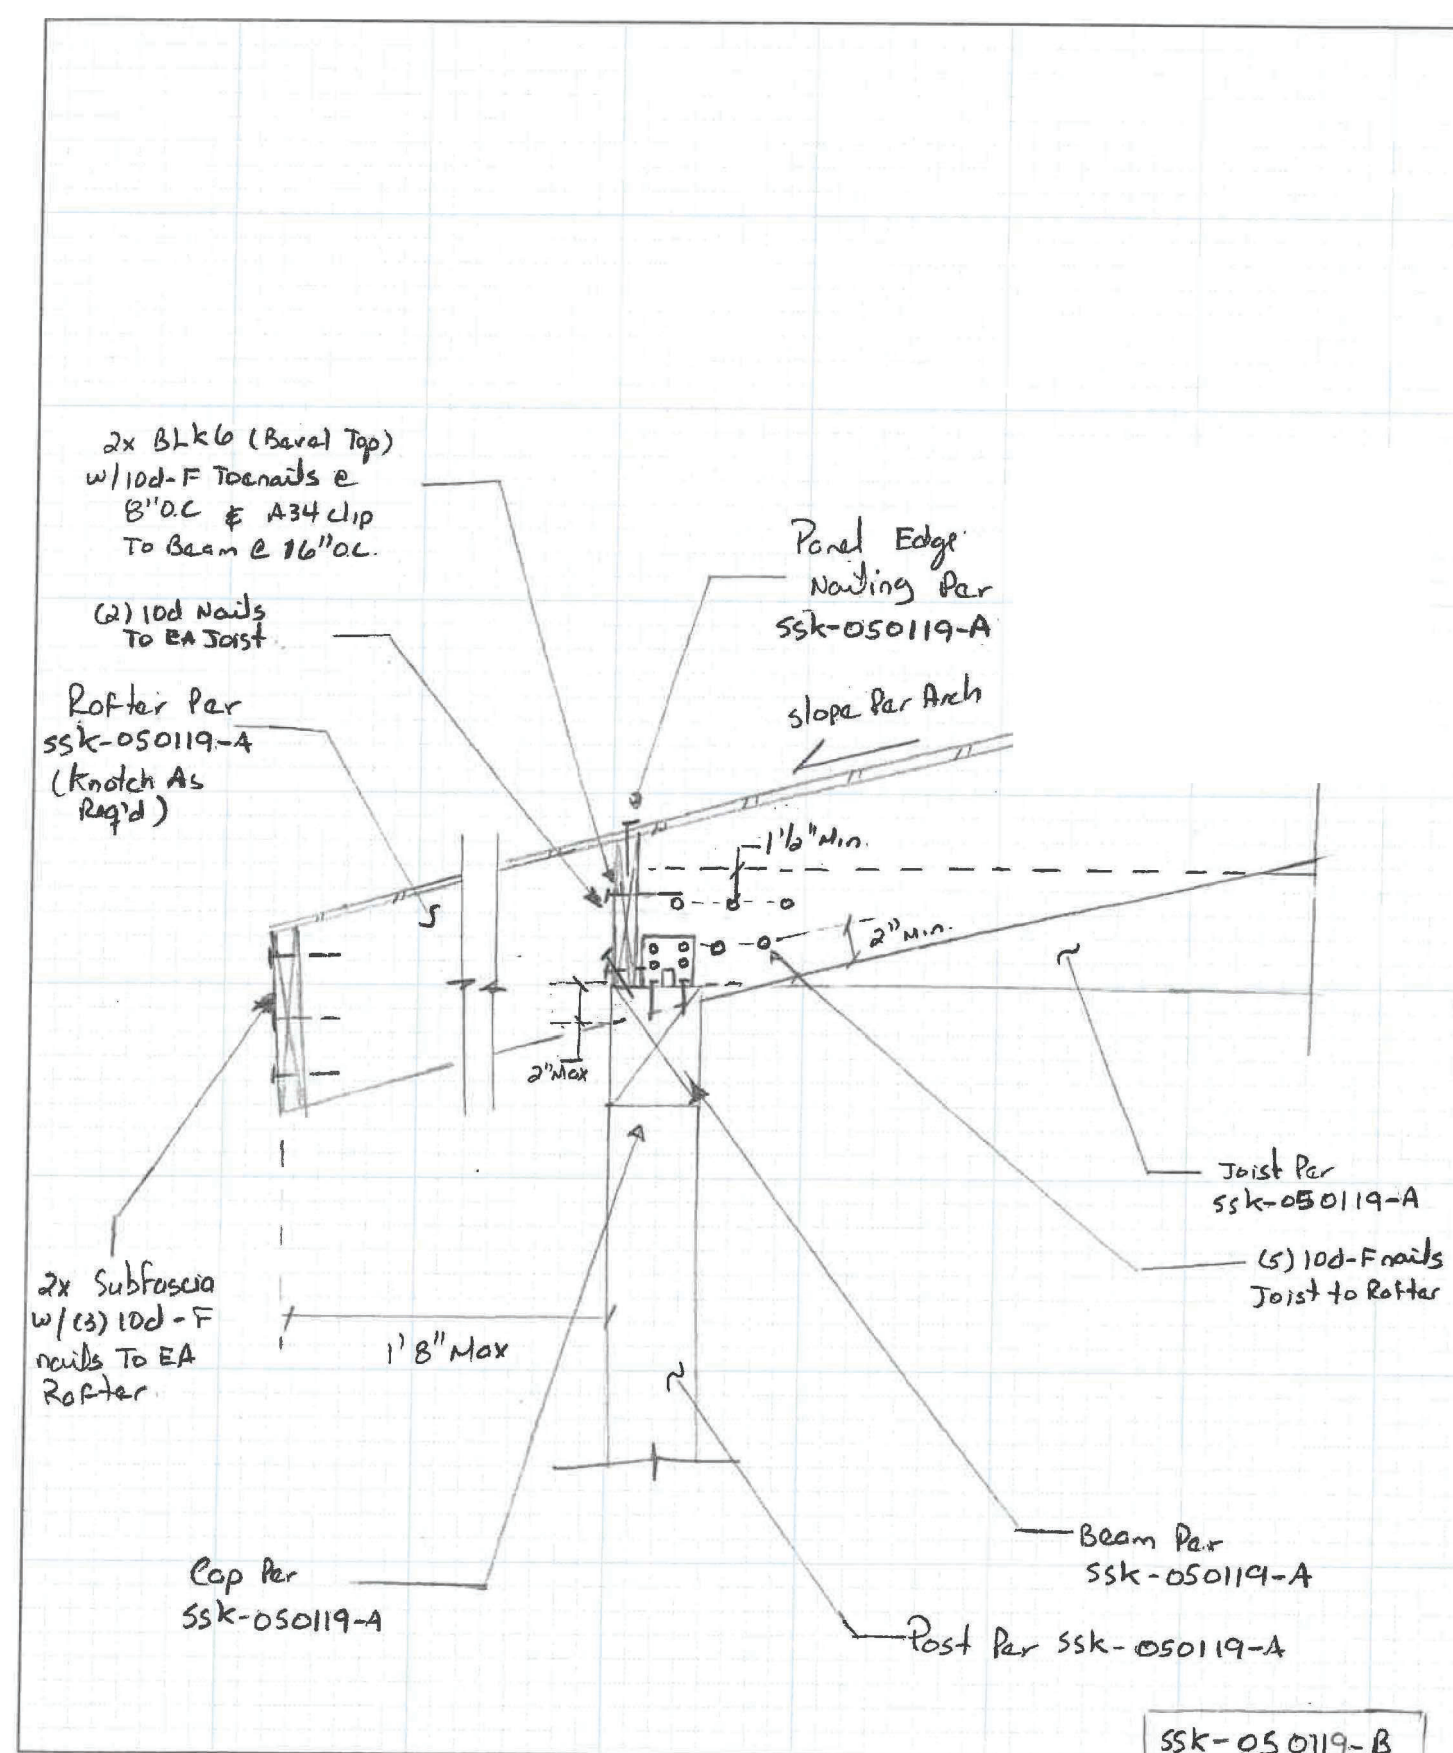 2x BLKG (Bevel Top)
w/10d-F Toenails @
8"O.C & A34 clip
To Beam @ 16"O.C.
(2) 10d Nails
To EA Joist
Rafter Per
SSK-050119-A
(Knotch As
Req'd)
Panel Edge
Nailing Per
SSK-050119-A
slope Per Arch
1 1/2" Min.
2" Min.
2" Max
Joist Per
SSK-050119-A
(5) 10d-F nails
Joist to Rafter
2x Subfascia
w/(3) 10d-F
nails To EA
Rafter
1'8" Max
Beam Per
SSK-050119-A
Cap Per
SSK-050119-A
Post Per SSK-050119-A
SSK-050119-B